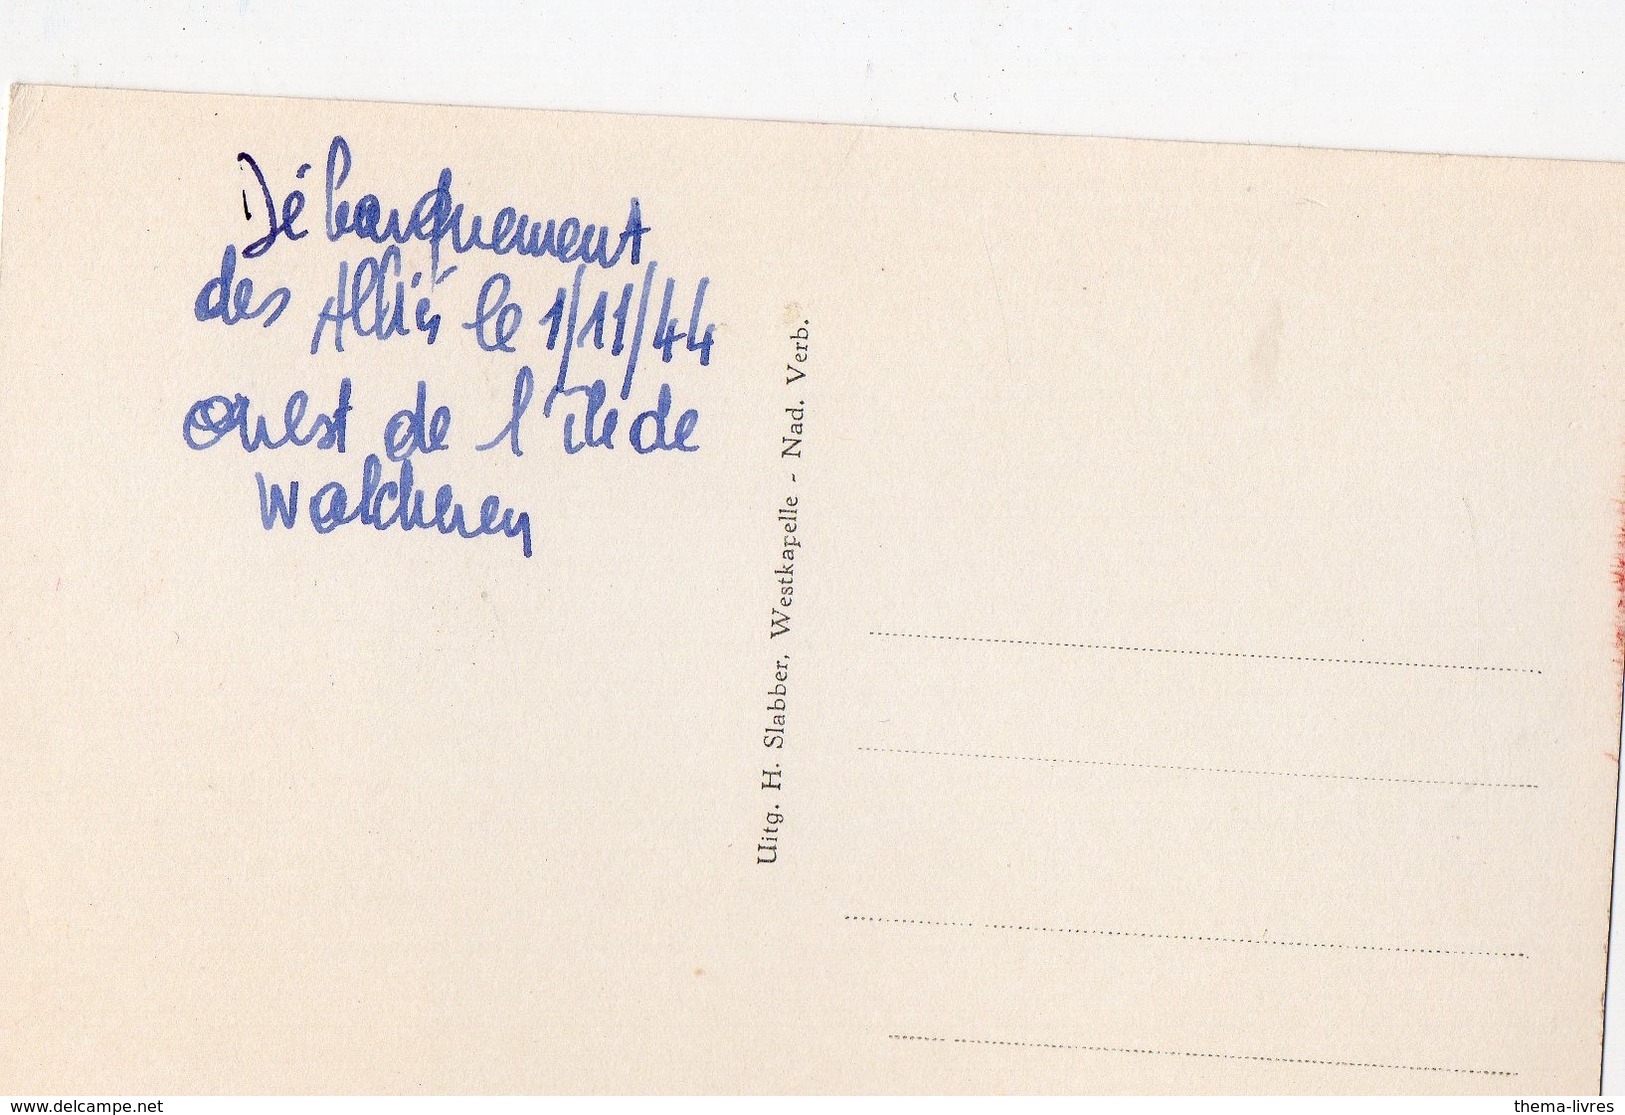 Débarquement
des Alliés le 1/11/44
ouest de l'île de
Walcheren
Uitg. H. Slabber, Westkapelle - Nad. Verb.
www.delcampe.net
thema-livres